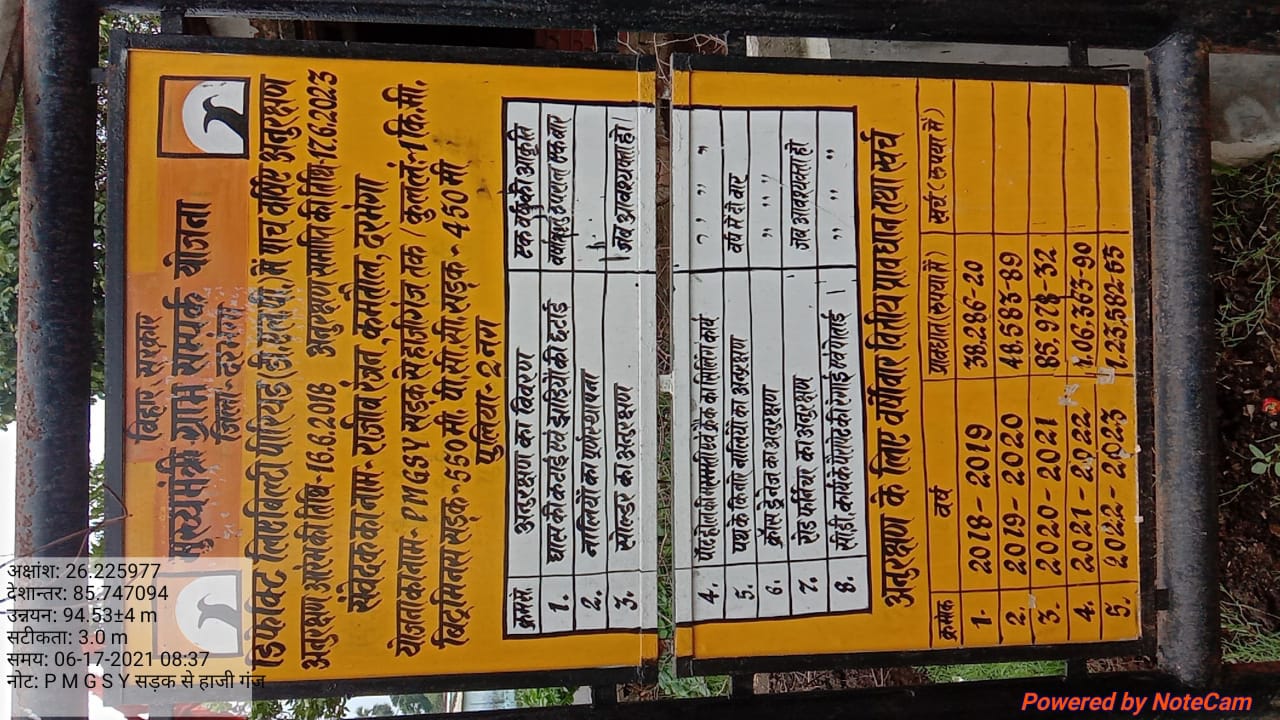 बिहार सरकार
मुख्यमंत्री ग्राम सम्पर्क योजना
जिला-दरभंगा
डिफेक्ट लाइबिल्टी पीरियड (डी.एल.पी.) में पांच वर्षिए अनुरक्षण
अनुरक्षण आरंभ की तिथि-16.6.2018 अनुरक्षण समाप्ति की तिथि-17.6.2023
संवेदक का नाम- राजीव रंजन, कमतौल, दरभंगा
योजना का नाम- PMGSY सड़क से हाजीगंज तक / कुल लं:-1 कि.मी.
बिटूमिनस सड़क-550 मी. पी.सी.सी. सड़क- 450 मी
पुलिया-2 नग
क्रमसं. अनुरक्षण का विवरण एक वर्ष की आवृति
1. घास की कटाई एवं झाडियों की छटाई वर्षाऋतु उपरान्त एक बार
2. नालियों का पूर्णस्थापना
3. सोल्डर का अनुरक्षण जब आवश्यकता हो।
4. पॉट होल की मरम्मती एवं क्रैक का सिलिंग कार्य " " " "
5. पथ के किनारे नालियों का अनुरक्षण वर्ष में दो बार
6. क्रॉस ड्रेनेज का अनुरक्षण " " "
7. रोड फर्निचर का अनुरक्षण जब आवश्यकता हो
8. सी.डी. कार्य के पारापेट की रंगाई एवं पोताई। " "
अनुरक्षण के लिए वर्षवार वित्तीय प्रावधान तथा खर्च
क्रमांक वर्ष प्रावधान (रूपया में) खर्च (रूपया में)
1. 2018-2019 38.286-20
2. 2019-2020 48.583-89
3. 2020-2021 85.978-32
4. 2021-2022 1.06.363-90
5. 2022-2023 1,23,582-53
अक्षांश: 26.225977
देशान्तर: 85.747094
उन्नयन: 94.53±4 m
सटीकता: 3.0 m
समय: 06-17-2021 08:37
नोट: P M G S Y सड़क से हाजी गंज
Powered by NoteCam